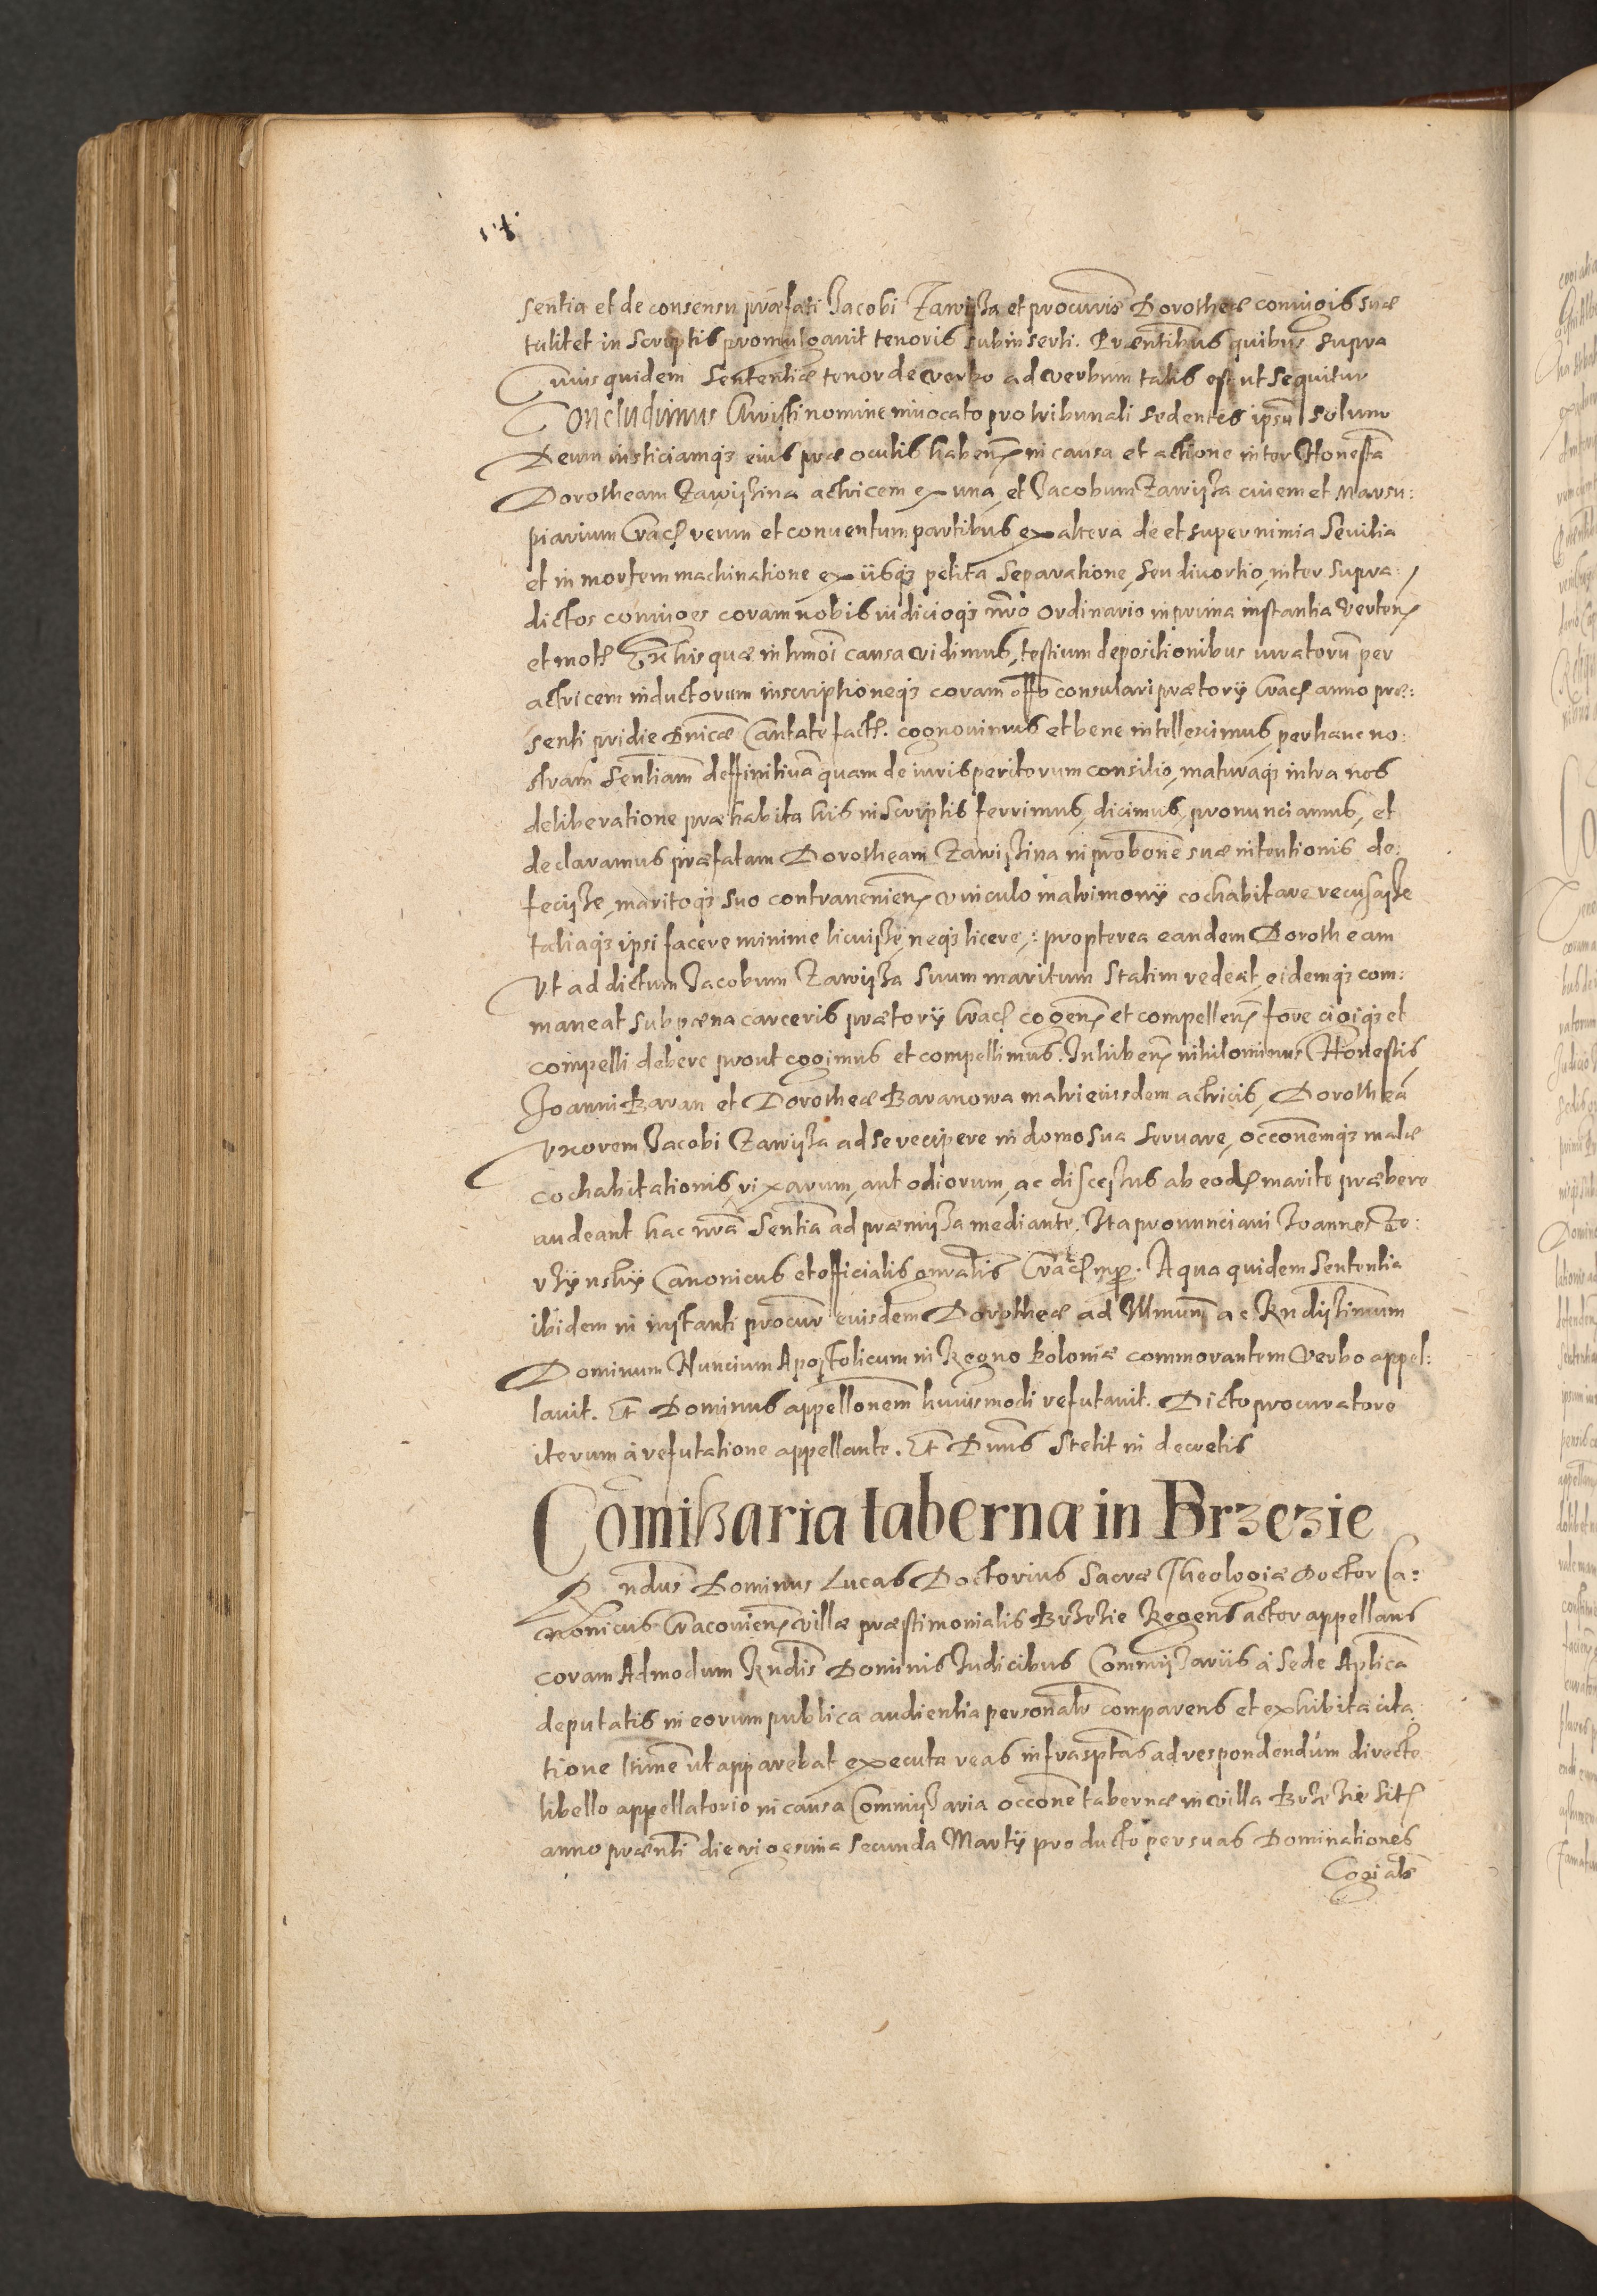 sentia et de consensu præfati Jacobi Zawissa et procuris Dorotheæ coniugis suæ
tulit et in scriptis promulgavit tenoris subinserti. Præntibus quibus supra
Cuius quidem sententiæ tenor de verbo ad verbum talis est ut sequitur
Concludimus Christi nomine invocato pro tribunali sedentes ipsū solum
Deum iusticiamqȝ eius præ oculis habenȝ in causa et actione inter Honestā
Dorotheam Zawissina actricem ex una, et Jacobum Zawissa civem et Marsu:
piarium Crac reum et conventum partibus ex altera de et super nimia sevitia
et in mortem machinatione ex iisqȝ petita separatione, seu divortio, inter supra
dictos coniuges coram nobis iudicioqȝ nr̄o ordinario in prima instantia verten
et mot Ex his quæ in hmōi causa vidimus, testium depositionibus iuratorū per
actricem inductorum inscriptioneqȝ coram offō consulari prætorii Crac anno præ:
senti pridie Dnicæ Cantate fact. cognovimus et bene intelleximus, per hanc no:
stram sentiam deffinitivā quam de iurisperitorum consilio, maturaqȝ intra nos
deliberatione præhabita his in scriptis ferrimus, dicimus, pronunciamus, et
declaramus præfatam Dorotheam Zawissina in probōne suæ intentionis de:
fecisse, maritoqȝ suo contravenien vinculo matrimonii cochabitare recusasse
taliaqȝ ipsi facere minime licuisse, neqȝ licere, propterea eandem Dorotheam
Ut ad dictum Jacobum Zawissa suum maritum statim redeat, eidemqȝ com:
maneat sub pæna carceris prætorii Crac cogen et compellen fore cigiqȝ et
compelli debere prout cogimus et compellimus. Inhiben nihilominus Honestis
Joanni Baran et Dorotheæ Baranowa matri eiusdem actricis, Dorotheā
Uxorem Jacobi Zawissa ad se recipere in domo sua servare, occōnemqȝ malæ
cochabitationis, rixarum, aut odiorum, ac discessus ab eod marito præbere
audeant hac nrā sentia ad præmissa mediante. Ita pronunciavi Joannes
Canonicus et officialis gnralis Crac mp. A qua quidem sententia
ibidem in instanti procur eiusdem Dorotheæ ad Illmum ac Rndissimum
Dominum Nuncium Apostolicum in Regno Poloniæ commorantem verbo appel:
lavit. Et Dominus appellōnem huiusmodi refutavit. Dicto procuratore
iterum à refutatione appellante. Et Dnus stetit in decretis
Cōmissaria taberna in Brzezie
Rndus Dominus Lucas Doctorius Sacræ Theologiæ Doctor Ca:
nonicus Cracovien villæ præstimonialis Brzezie Regens actor appellans
coram Admodum Rndis Dominis Iudicibus Commissariis à Sede Aplica
deputatis in eorum publica audientia personalr comparens et exhibita cita
tione ltime ut apparebat executa reas infrasptas ad respondendum directe
libello appellatorio in causa Commissaria occōne tabernæ in villa Brzezie sit
anno prænti die vigesima secunda Martii producto per suas Dominationes
Cogi als